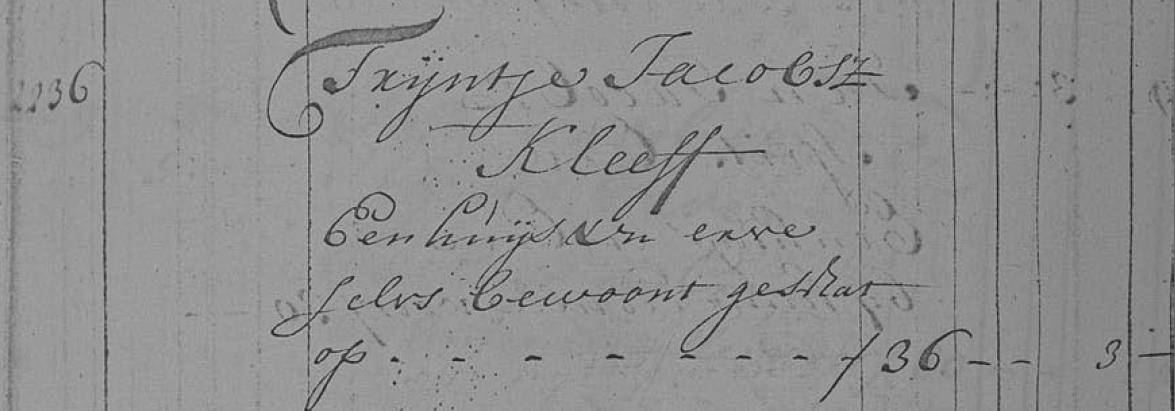 2236 Trÿntje Jacobsz
Kleeff
Een huÿs en erve
selvs bewoont geschat
op - - - - - - - - ƒ 36 - - 3 -